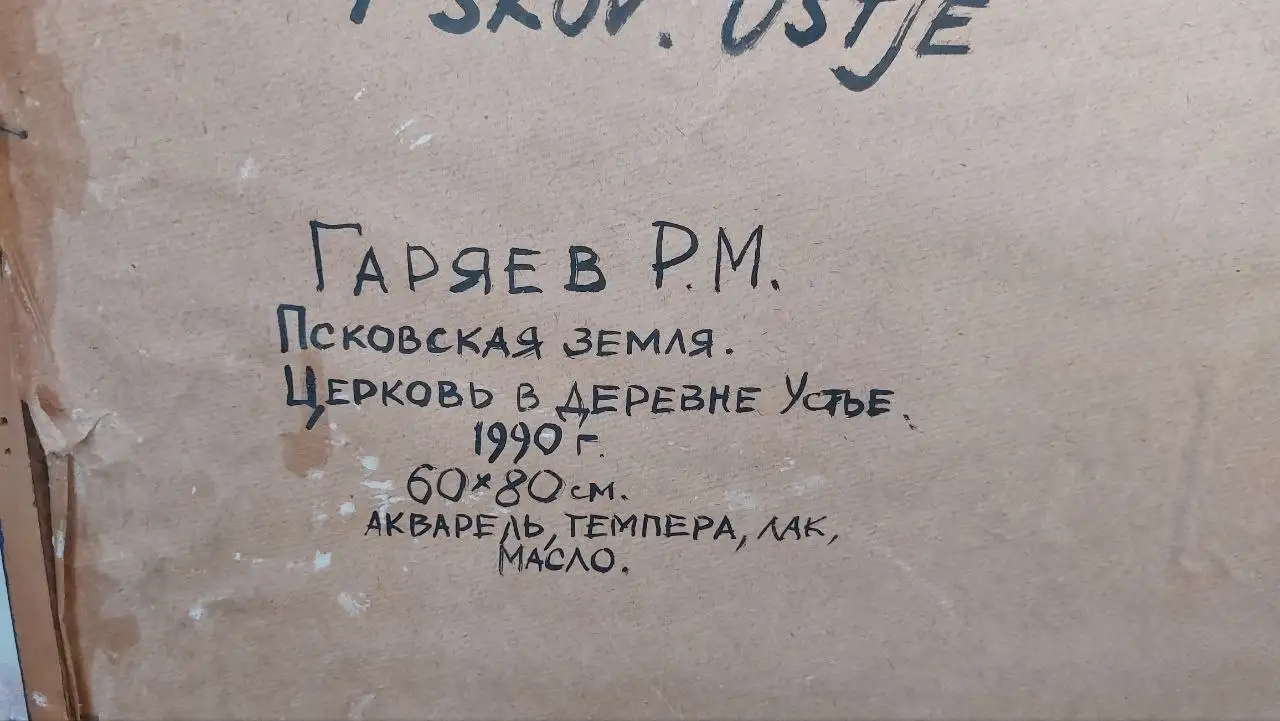 PSKOV. USTJE
ГАРЯЕВ Р.М.
ПСКОВСКАЯ ЗЕМЛЯ.
ЦЕРКОВЬ В ДЕРЕВНЕ УСТЬЕ.
1990 г.
60×80 см.
АКВАРЕЛЬ, ТЕМПЕРА, ЛАК,
МАСЛО.